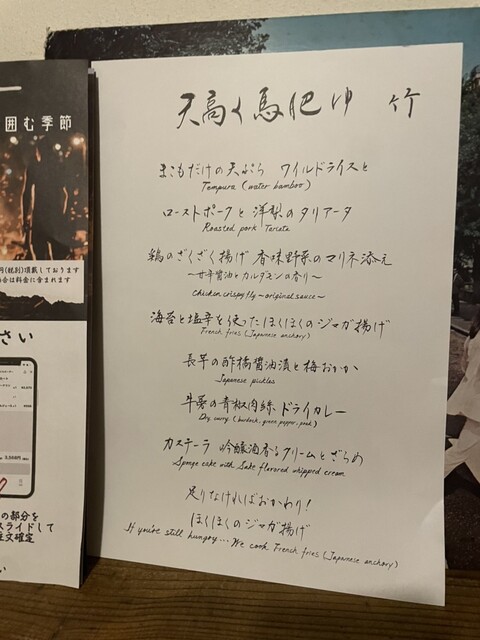 天高く馬肥ゆ 竹
まこもだけの天ぷら ワイルドライスと
Tempura (water bamboo)
ローストポークと洋梨のタリアータ
Roasted pork Tariata
鶏のざくざく揚げ 香味野菜のマリネ添え
〜甘辛醤油とカルダモンの香り〜
Chicken crispy fly 〜original sauce〜
海苔と塩辛を使ったほくほくのジャガ揚げ
French fries (Japanese anchovy)
長芋の酢橘醤油漬と梅おかか
Japanese pickles
牛蒡の青椒肉絲 ドライカレー
Dry curry (burdock, green pepper, pork)
カステーラ 吟醸酒香るクリームとざらめ
Sponge cake with Sake flavored whipped cream
足りなければおかわり！
ほくほくのジャガ揚げ
If you're still hungry... We cook French fries (Japanese anchovy)
囲む季節
円(税別)頂戴しております
合は料金に含まれます
さい
の部分を
スライドして
注文確定